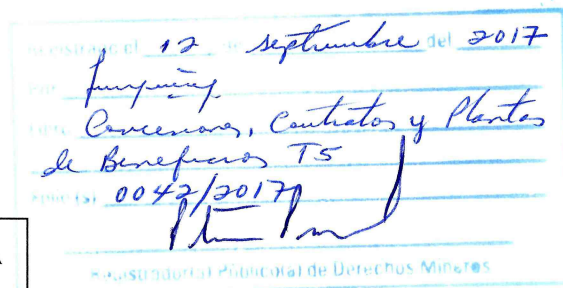 Registrado el 12 de septiembre del 2017
Por
Libro Concesiones, Contratos y Plantas
de Beneficios T5
0042/2017
Registrador(a) Público(a) de Derechos Mineros